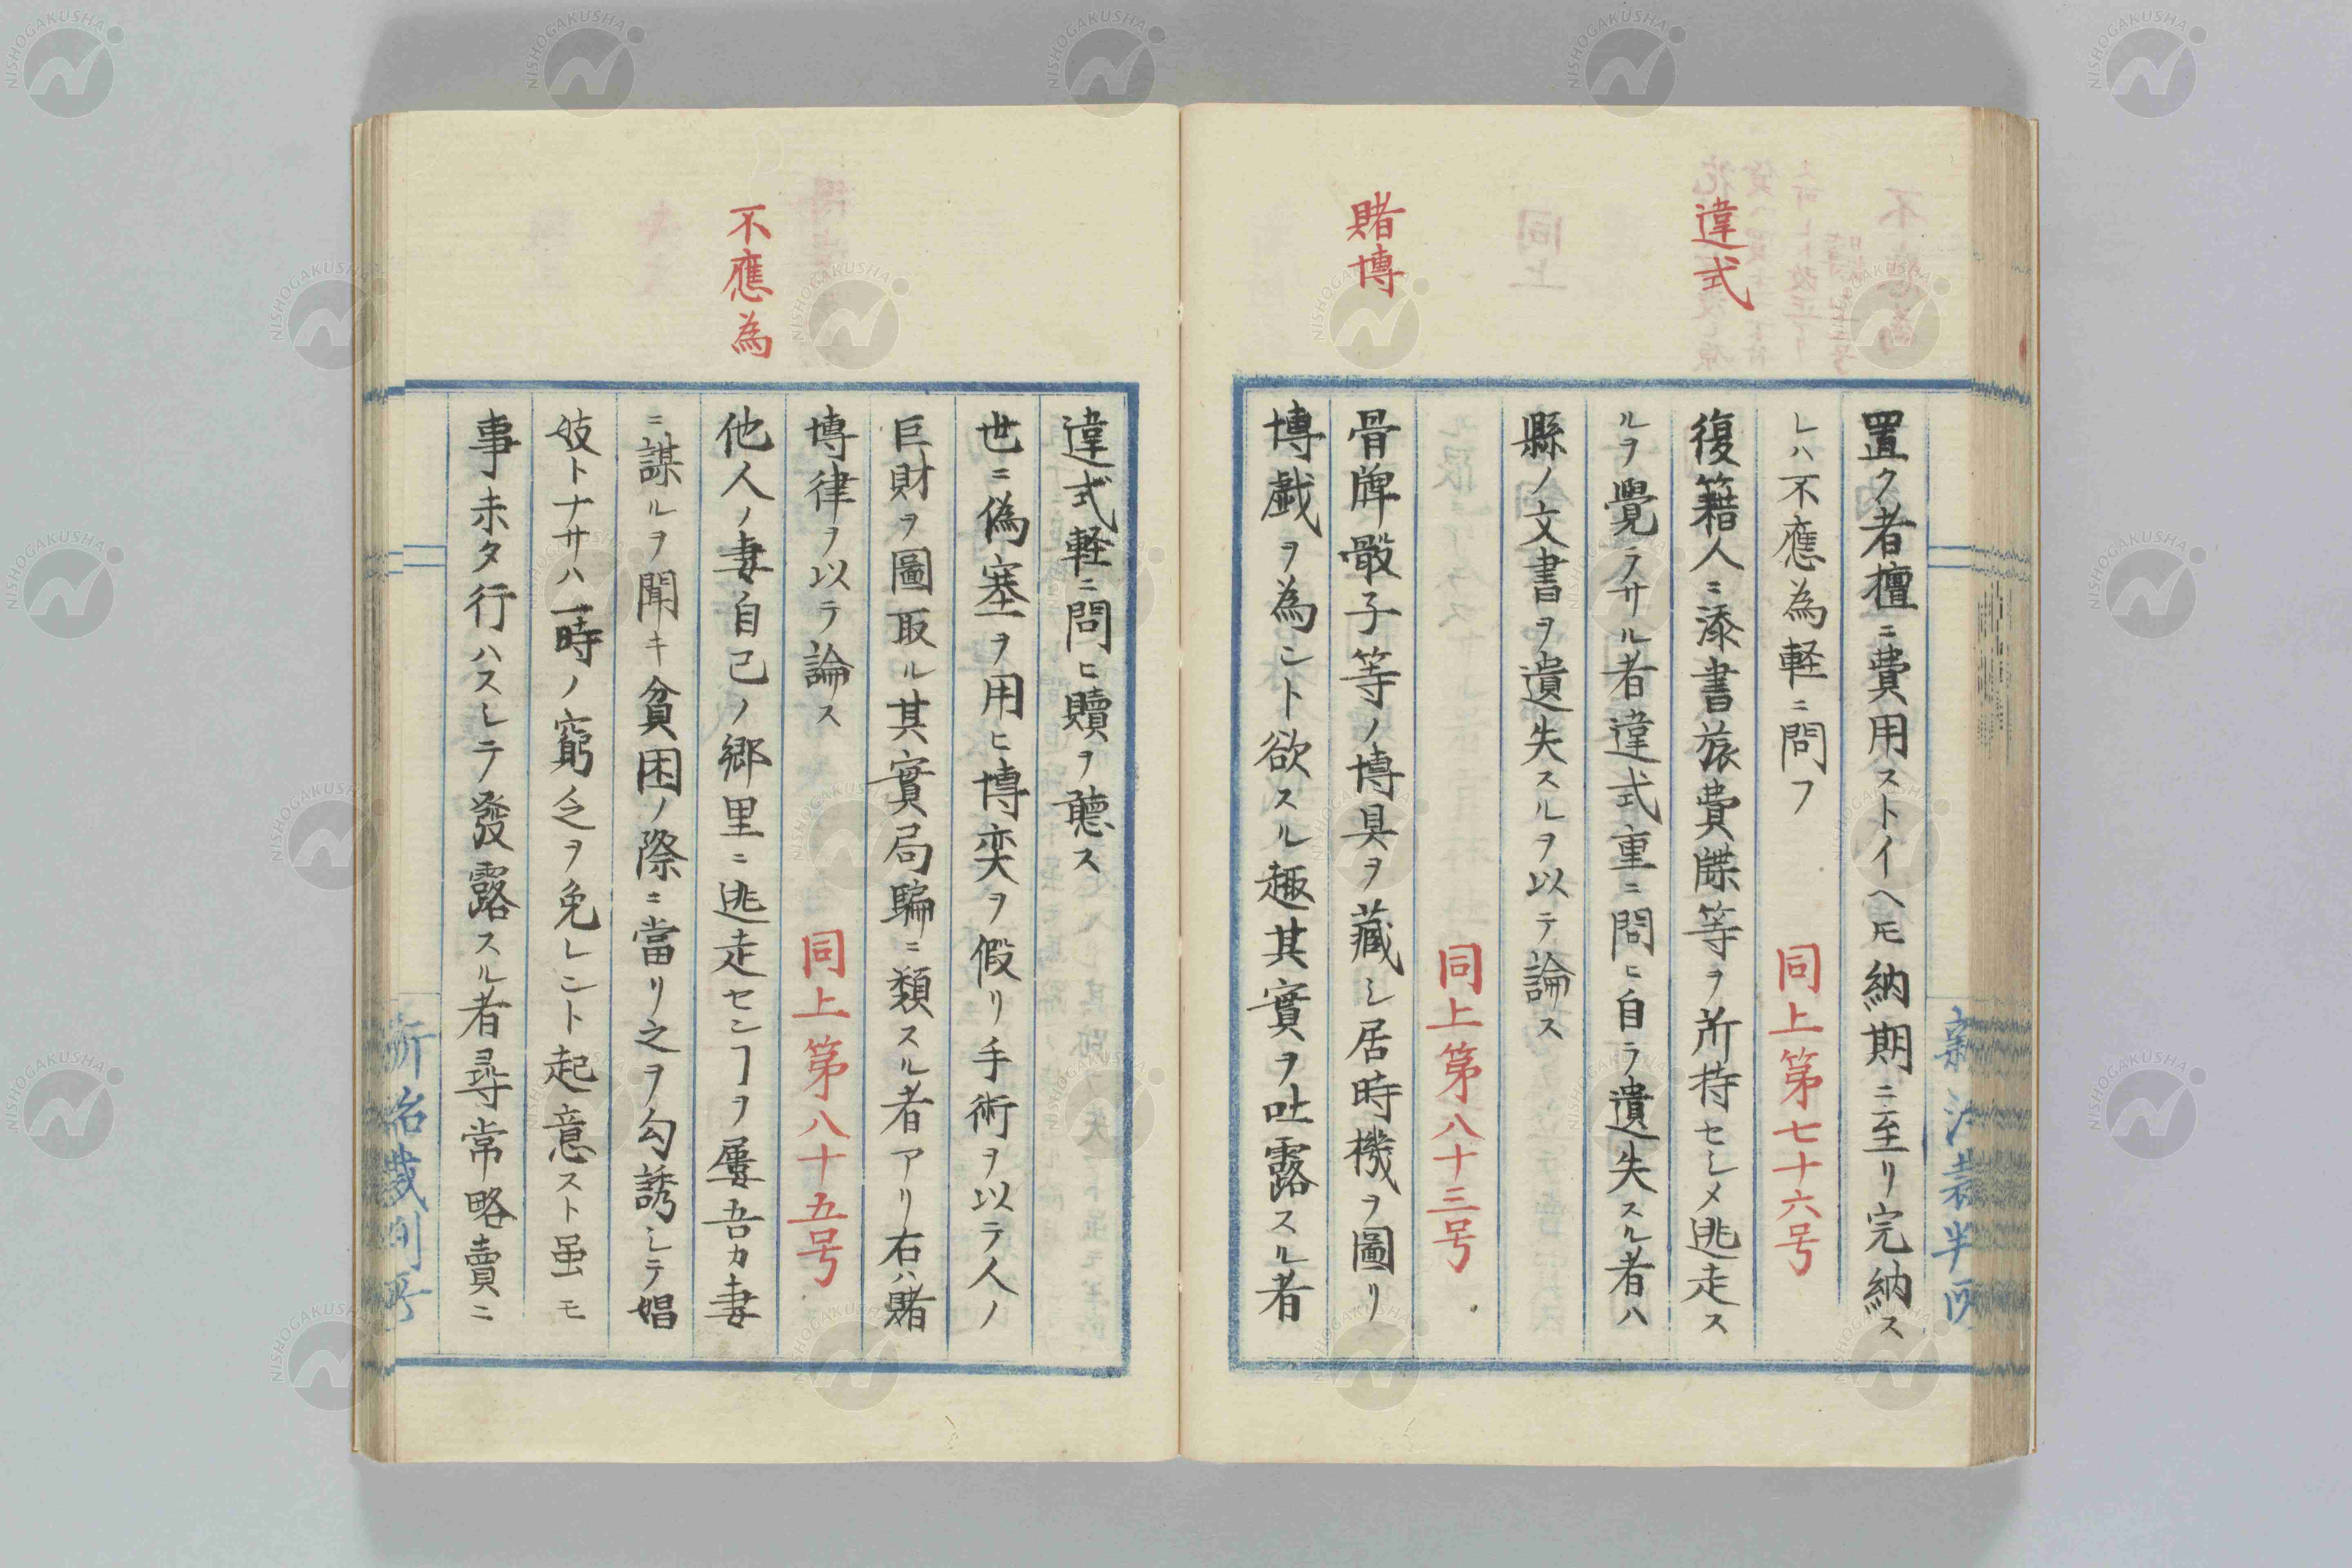 違式
賭博
置ク者擅ニ費用ストイヘ𪜈納期ニ至リ完納ス
レハ不應為軽ニ問フ 同上第七十六号
復籍人ニ添書旅費牒等ヲ所持セシメ逃走ス
ルヲ覺ラサル者違式重ニ問ヒ自ラ遺失スル者ハ
縣ノ文書ヲ遺失スルヲ以テ論ス
同上第八十三号
骨牌骰子等ノ博具ヲ藏シ居時機ヲ圖リ
博戯ヲ為ント欲スル趣其實ヲ吐露スル者
不應為
違式軽ニ問ヒ贖ヲ聴ス
世ニ偽塞ヲ用ヒ博奕ヲ假リ手術ヲ以テ人ノ
巨財ヲ圖取ル其實局騙ニ類スル者アリ右ハ賭
博律ヲ以テ論ス 同上第八十五号
他人ノ妻自己ノ郷里ニ逃走センヿヲ屢吾カ妻
ニ謀ルヲ聞キ貧困ノ際ニ當リ之ヲ勾誘シテ娼
妓トナサハ一時ノ窮乏ヲ免レント起意スト虽モ
事未タ行ハスレテ發露スル者尋常略賣ニ
新治裁判所
NISHOGAKUSHA